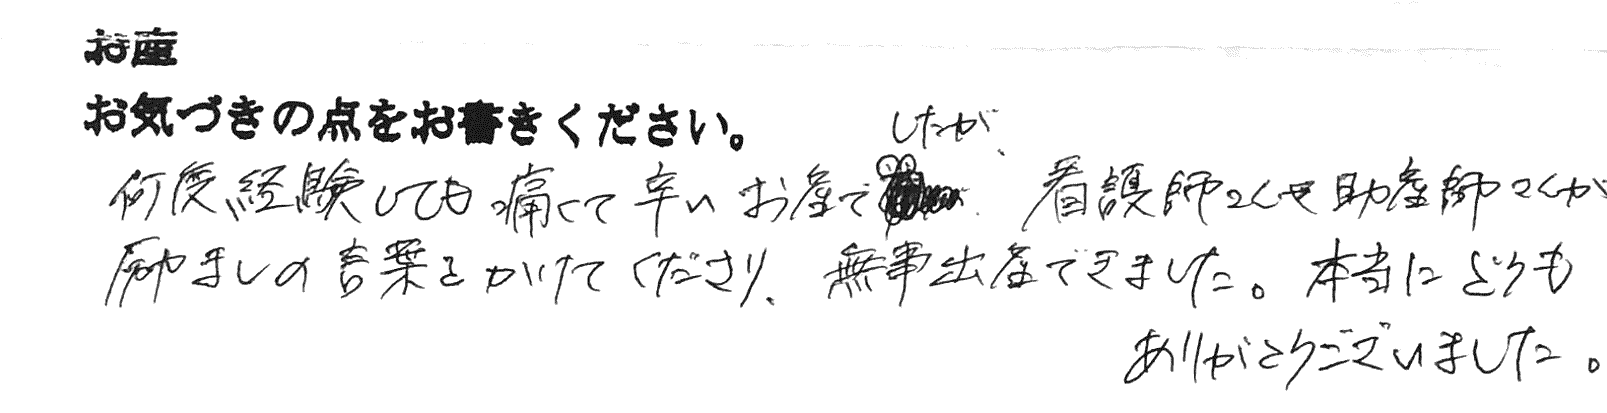 お産
お気づきの点をお書きください。
何度経験しても痛くて辛いお産でしたが、看護師さんや助産師さんが
励ましの言葉をかけてくださり、無事出産できました。本当にどうも
ありがとうございました。